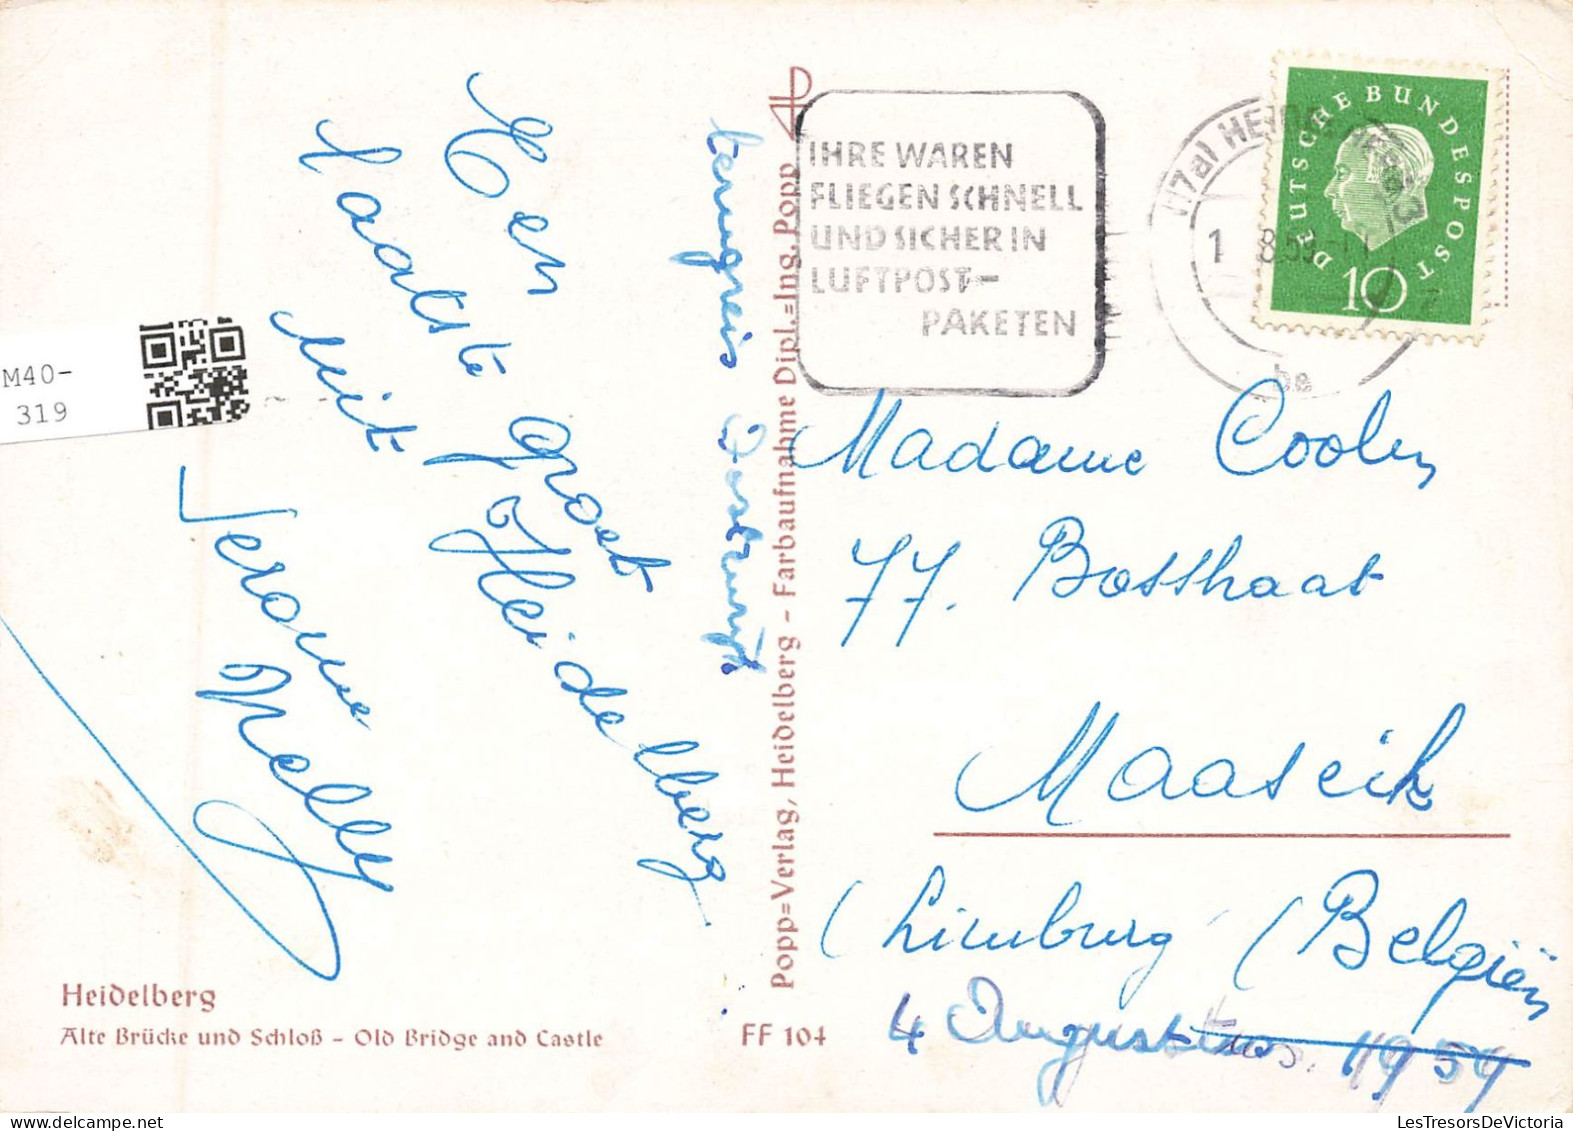 Een
laatste groet
uit Heidelberg
Jerome
Nelly
terugreis Oostenrijk
M40-
319
Heidelberg
Alte Brücke und Schloß - Old Bridge and Castle
FF 104
Popp=Verlag, Heidelberg - Farbaufnahme Dipl.=Ing. Popp
IHRE WAREN
FLIEGEN SCHNELL
UND SICHER IN
LUFTPOST-
PAKETEN
(17a) HEIDELBERG 3
be
DEUTSCHE BUNDESPOST
10
Madame Coolen
77. Bosstraat
Maaseik
(Limburg (Belgiën
4 Augustus 1959
LesTresorsDeVictoria.com